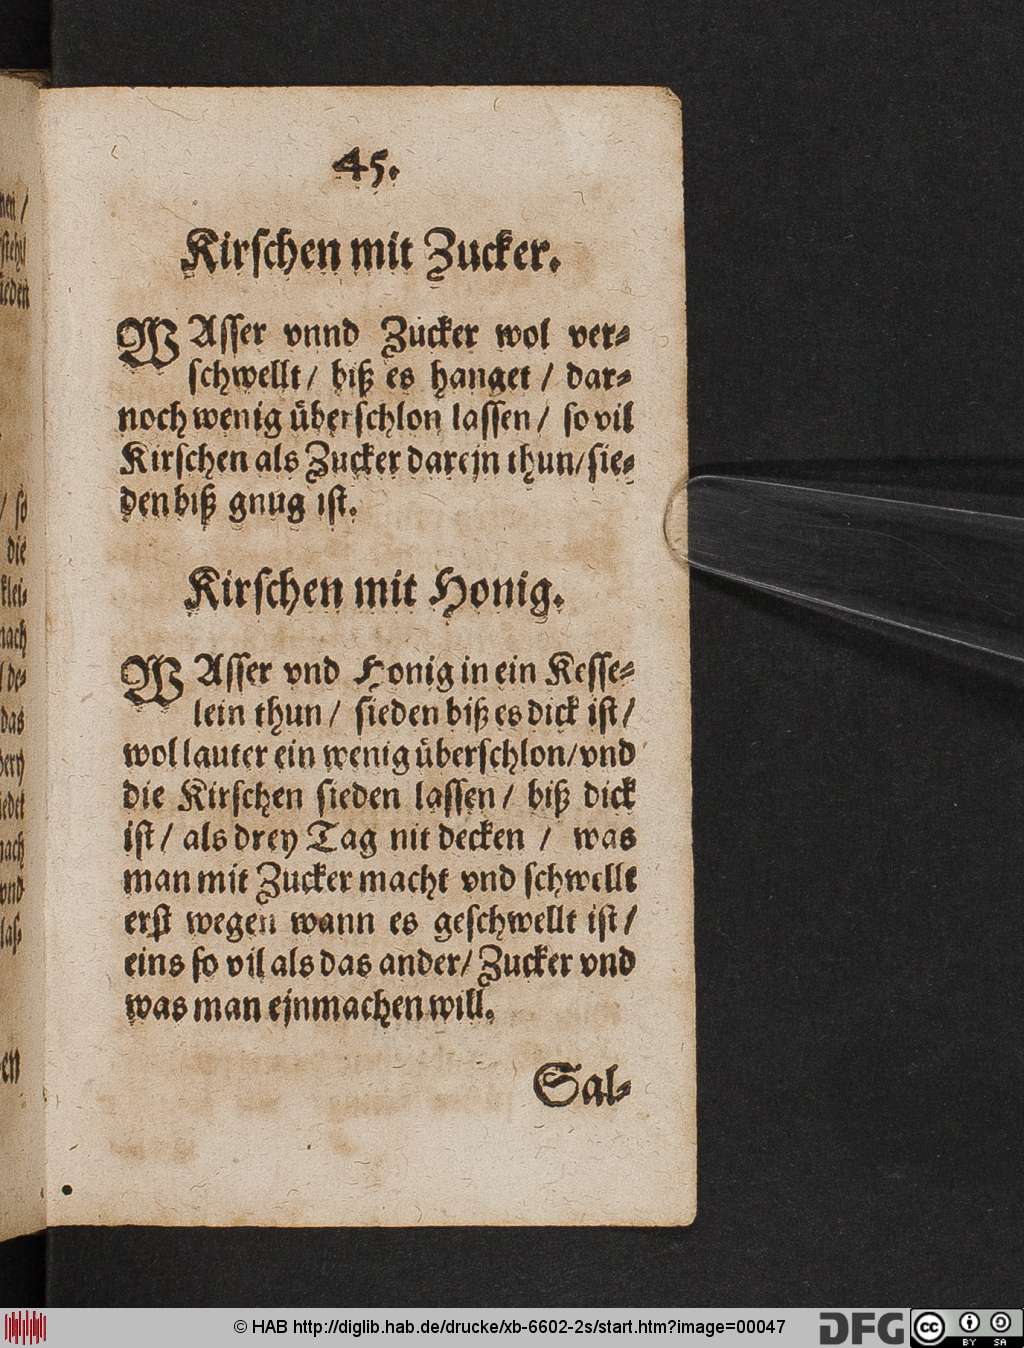 45.
Kirschen mit Zucker.
WAsser vnnd Zucker wol ver-
schwellt / biß es hanget / dar-
noch wenig überschlon lassen / so vil
Kirschen als Zucker darejn thun / sie-
den biß gnug ist.
Kirschen mit Honig.
WAsser vnd Honig in ein Kesse-
lein thun / sieden biß es dick ist /
wol lauter ein wenig überschlon / vnd
die Kirschen sieden lassen / biß dick
ist / als drey Tag nit decken / was
man mit Zucker macht vnd schwellt
erst wegen wann es geschwellt ist /
eins so vil als das ander / Zucker vnd
was man ejnmachen will.
Sal-
nen /
ieden
/ so
die
klei-
nach
de-
das
nach
vnd
las-
en
© HAB http://diglib.hab.de/drucke/xb-6602-2s/start.htm?image=00047
DFG
cc BY SA